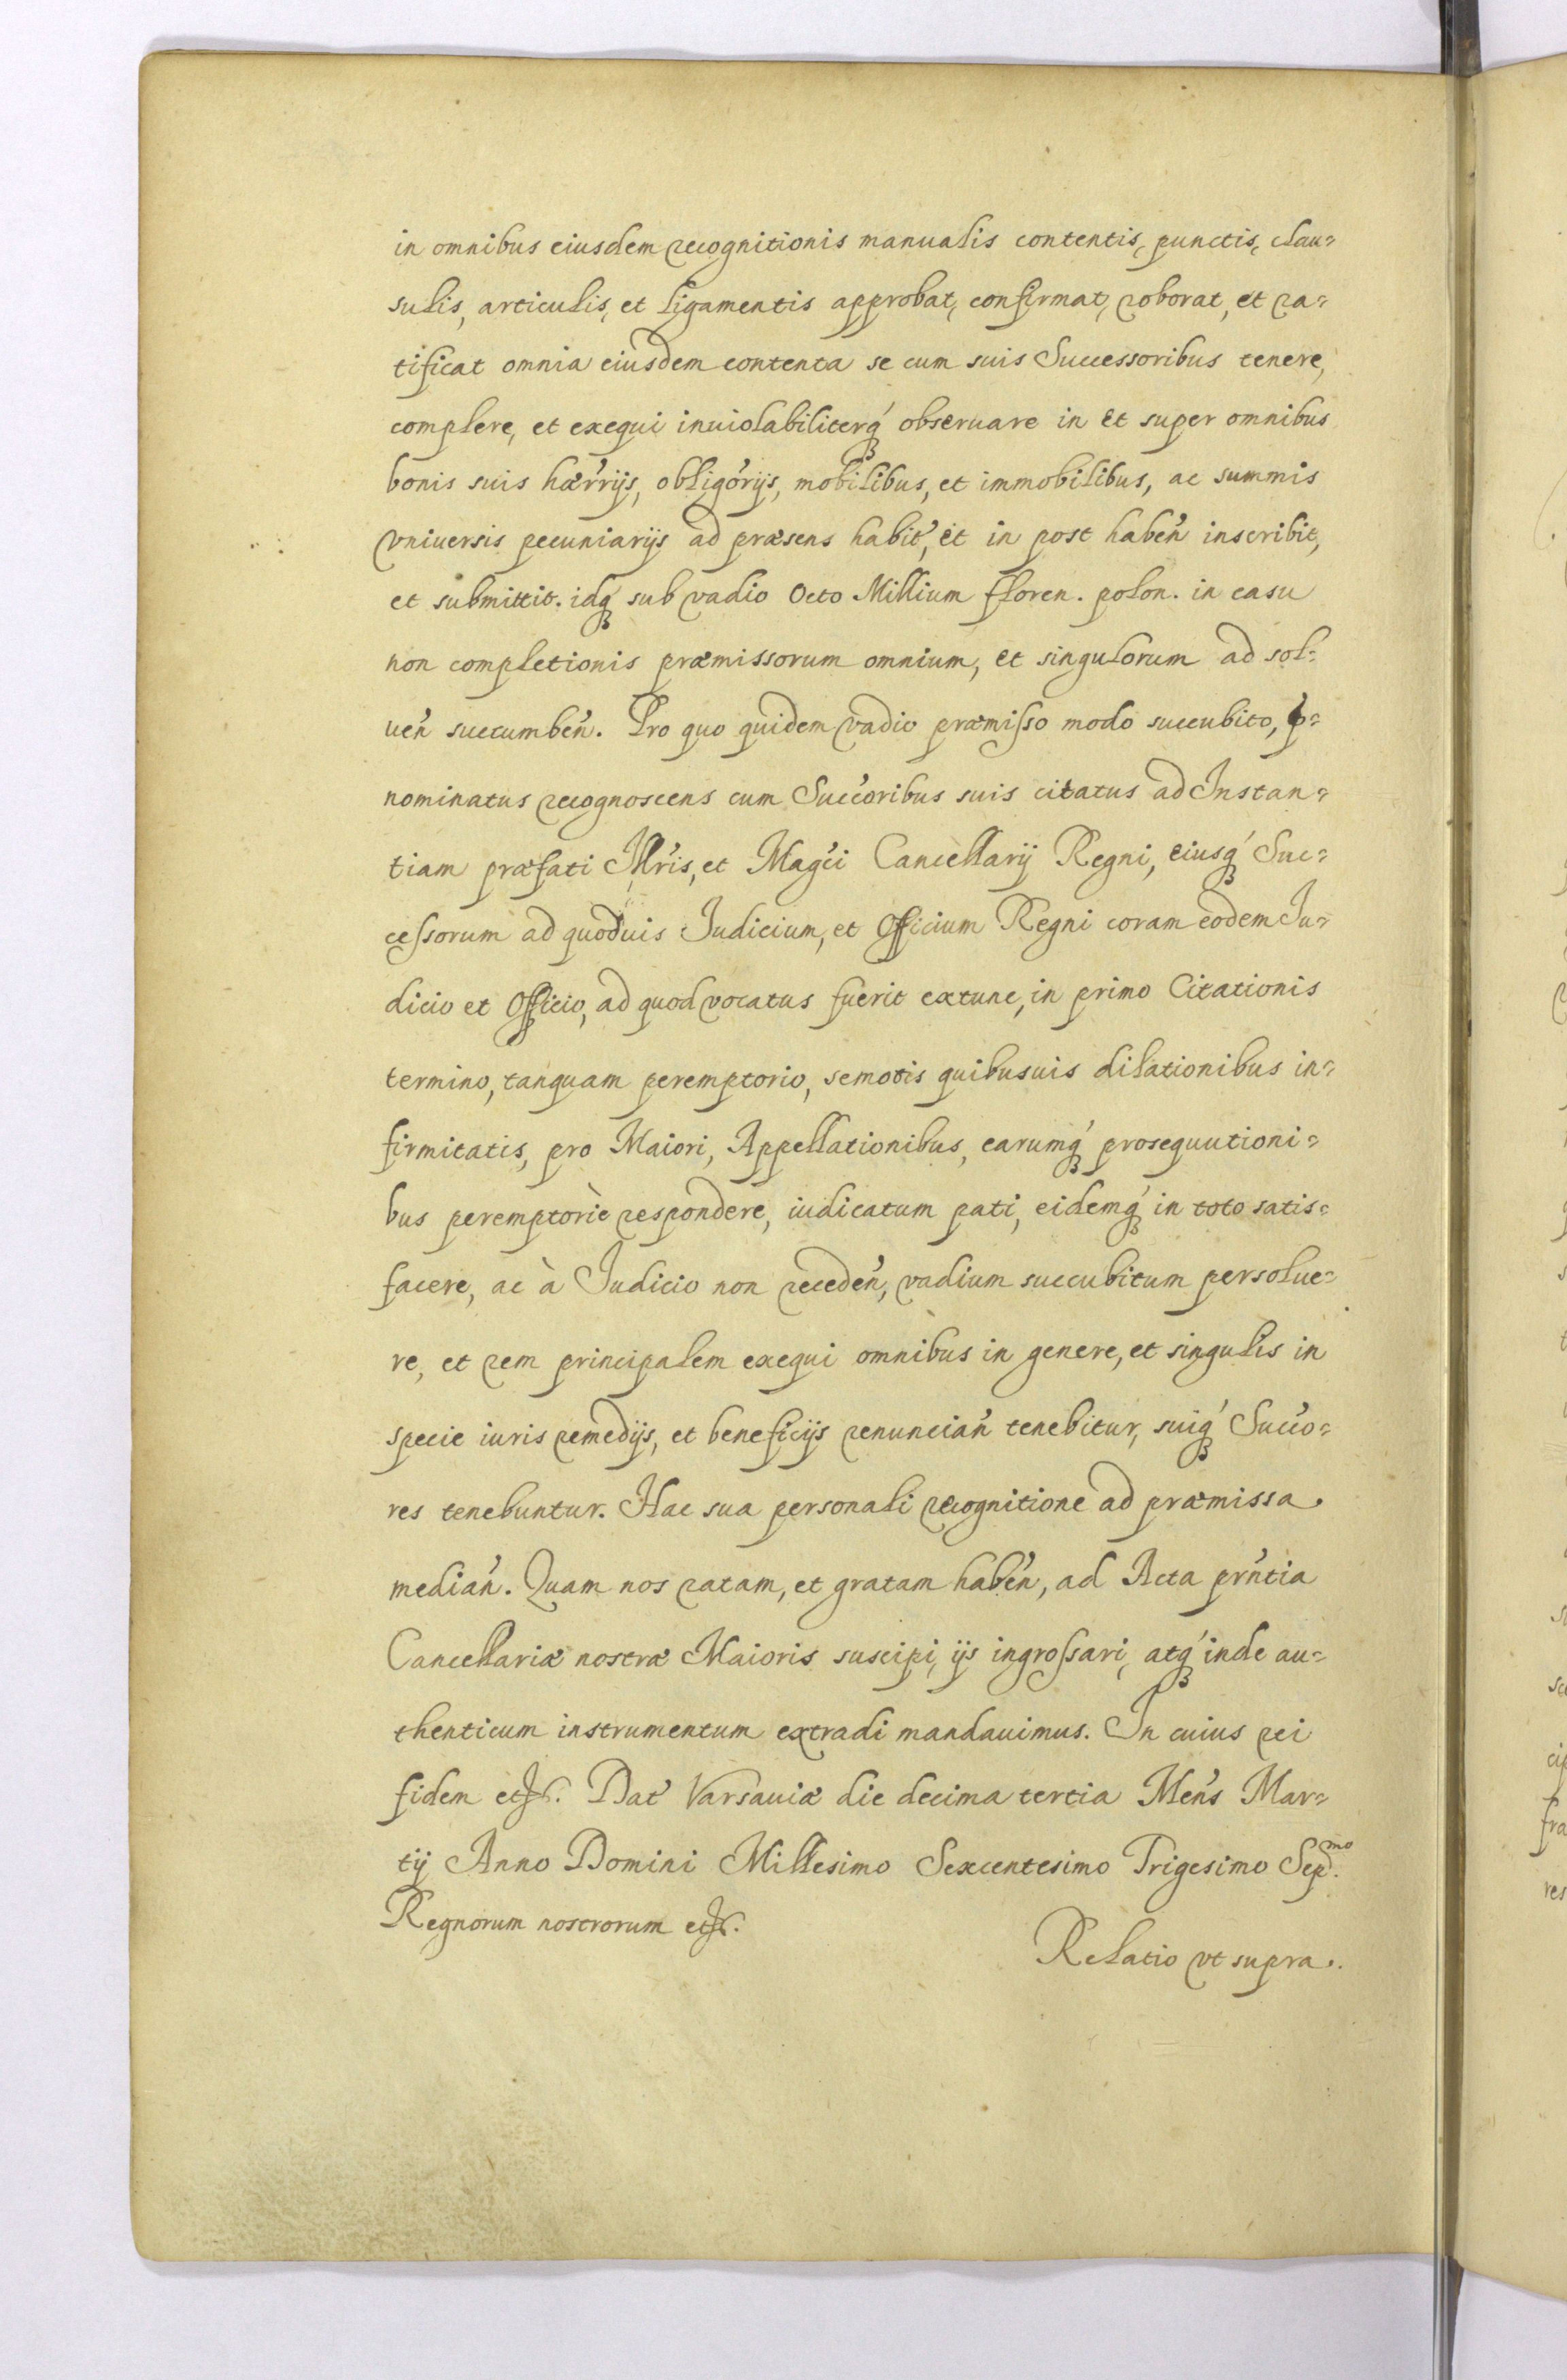 in omnibus eiusdem recognitionis manualis contentis, punctis, clau=
sulis, articulis, et ligamentis approbat, confirmat, roborat, et ra=
tificat omnia eiusdem contenta se cum suis Successoribus tenere,
complere, et exequi inuiolabiliterq́ obseruare in et super omnibus
bonis suis hær̓rijs, obligo̓rijs, mobilibus, et immobilibus, ac summis
vniuersis pecuniarijs ad præsens habit̓, et in post haben̓ inscribit,
et submittit. idq́ sub vadio Octo Millium floren. polon. in casu
non completionis præmissorum omnium, et singulorum ad sol=
uen̓ succumben̓. Pro quo quidem vadio præmisso modo succubito, p̓=
nominatus recognoscens cum Succ̓oribus suis citatus ad Instan=
tiam præfati Illr̓is, et Mag̓ci Cancellarij Regni, eiusq́ Suc=
cessorum ad quoduis Iudicium, et Officium Regni coram eodem Iu=
dicio et Officio, ad quod vocatus fuerit extunc, in primo Citationis
termino, tanquam peremptorio, semotis quibusuis dilationibus in=
firmitatis, pro Maiori, Appellationibus, earumq́ prosequutioni=
bus peremptoriè respondere, iudicatum pati, eidemq́ in toto satis=
facere, ac à Iudicio non receden̓, vadium succubitum persolue=
re, et rem principalem exequi omnibus in genere, et singulis in
specie iuris remedijs, et beneficijs renuncian̓ tenebitur, suiq́ Succ̓o=
res tenebuntur. Hac sua personali recognitione ad præmissa
median̓. Quam nos ratam, et gratam haben̓, ad Acta prn̓tia
Cancellariæ nostræ Maioris suscipi, ijs ingrossari, atq́ inde au=
thenticum instrumentum extradi mandauimus. In cuius rei
fidem etc. Dat̓ Varsauiæ die decima tertia Men̓s Mar=
tij Anno Domini Millesimo Sexcentesimo Trigesimo Sep.mo
Regnorum nostrorum etc.
Relatio vt supra.